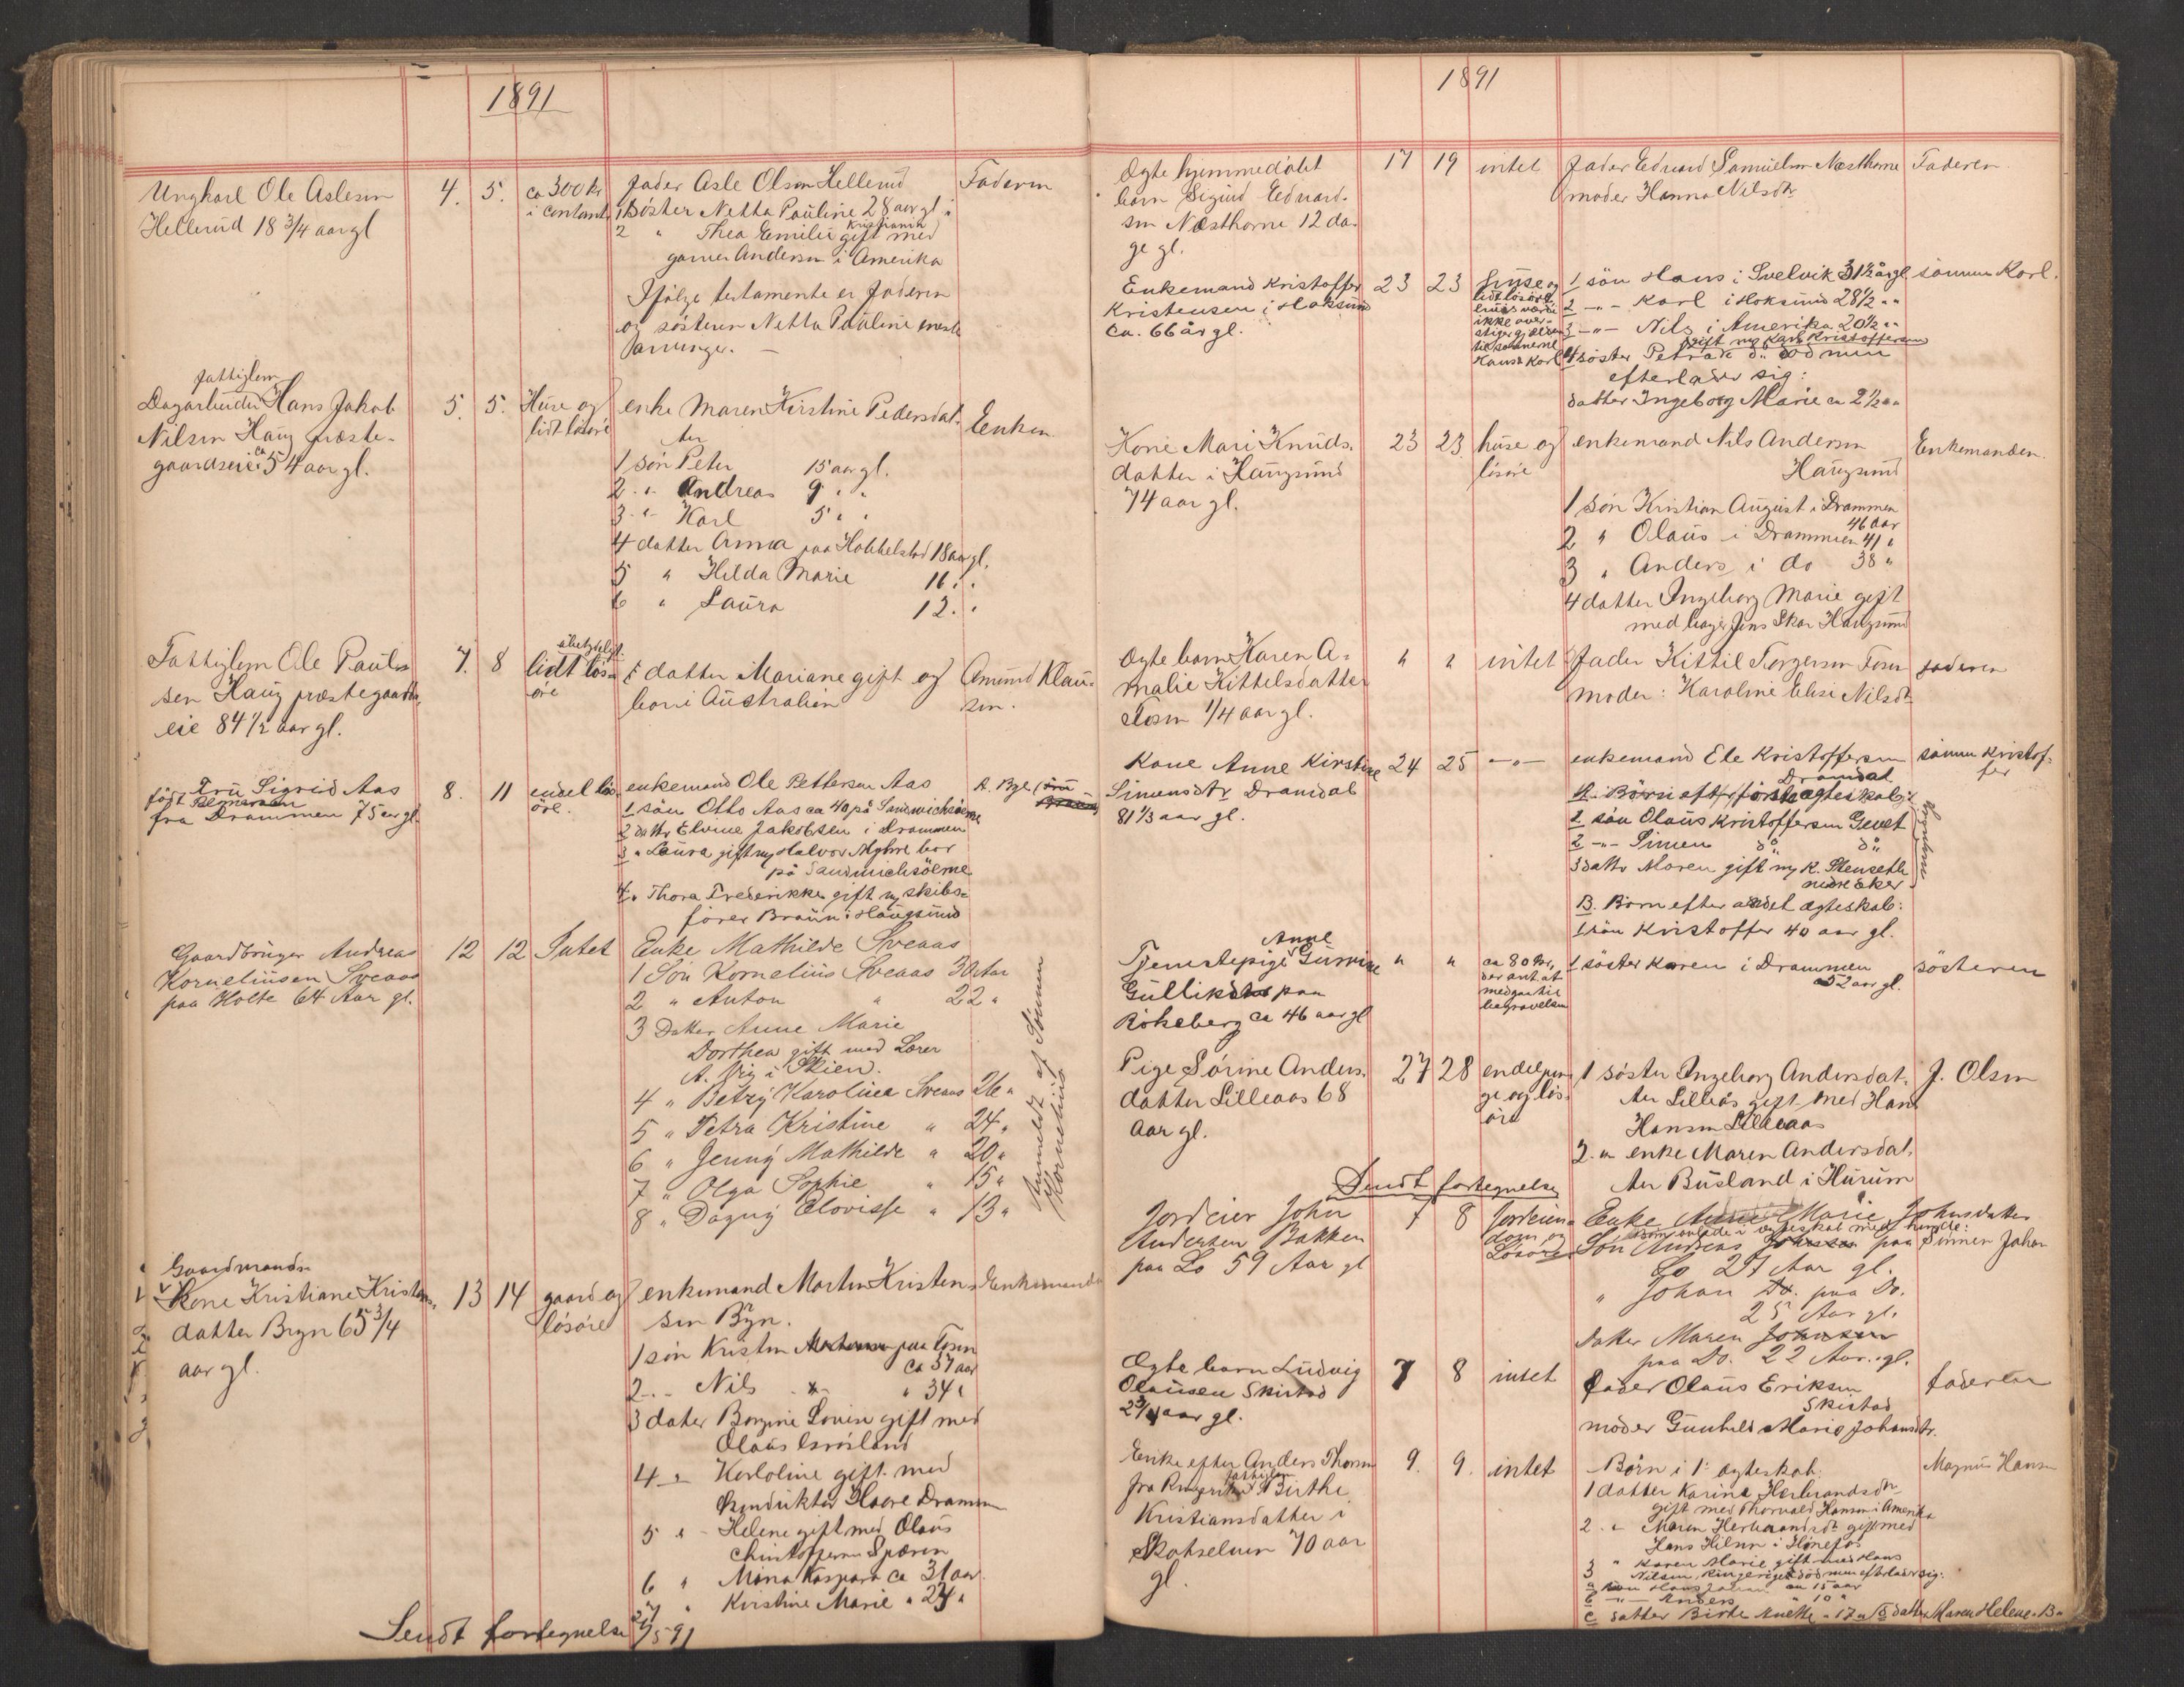 1891
Ungkarl Ole Aslesen
Hellerud 18 3/4 aar gl
4. 5. ca 300 kr
i contant
Fader Asle Olsen Hellerud
1 Söster Netta Pauline 28 aar gl
2 " Thea Emilie gift med
Anderson i Amerika
Ifölge testamente er faderen
og sösteren Netta Pauline eneste
arvinger. —
Faderen
fattiglem
Dagarbeider Hans Jakob
Nilsen Haug præste-
gaardseie ca 54 aar gl.
5. 5. Huse og
lidt lösöre
enke Maren Kirstine Pedersdat-
ter
1 sön Peter 15 aar gl.
2 - " Andreas 9 " "
3 - " Karl 5 " "
4 datter Anna paa Hobbelstad 18 aar gl.
5 " Hilda Marie 16 " "
6 " Laura 12 " "
Enken
Fattiglem Ole Pauls
sen Haug præstegaards
eie 84 1/2 aar gl.
7. 8 ubetydeligt
lidt lös-
öre
1 datter Mariane gift og
bor i Australien
Amund Klau-
sen.
Fru Sigrid Aas
född
fra Drammen 75 aar gl
8. 11 endel lös
öre.
enkemand Ole Pettersen Aas
1 sön Otto Aas ca 40 på Sandwichsöerne
2 dattr Elvine Jakobsen i Drammen
3 " Laura gift m/ Halvor Myhre bor
på Sandwichsöerne
4 " Thora Frederikke gift m/ skibs-
förer Braun i Haugsund
Gaardbruger Andreas
Korneliusen Sveaas
paa Holte 64 Aar gl.
12 12 Intet
Enke Mathilde Sveaas
1 Sön Kornelius Sveaas 30 Aar
2 " Anton " 22 "
3 Datter Anne Marie
Dorthea gift med Lærer
A. Vig i Skien.
4 " Betzy Karolines Sveaas 26 "
5 " Petra Kristine " 24 "
6 " Jenny Mathilde " 20 "
7 " Olga Sophie " 15 "
8 " Dagny Elovisse " 13 "
Anmeldt af Sönnen
Kornelius
Gaardmands
Kone Kristiane Kristens-
datter Bryn 65 3/4
aar gl.
13 14 gaard og
lösöre
enkemand Martin Kristen-
sen Bryn.
1 sön Kristen paa Fosen
ca 37 aar
2 - - Nils " 34 "
3 datter Borgine Lovise gift med
Olaus
4 - " Karoline gift med
konduktör Drammen
5 " - Helene gift med Olaus
Christoffersen Spæren
6 " Mina Kaspara ca 31 aar
7 " Kirstine Marie " 24 "
Enkemanden
Sendt fortegnelse 27/5 91
1891
Ægte hjemmedöbt
barn Sigurd Edvard-
sen Næsthorne 12 da-
ge gl.
17 19 intet
Fader Edvard Samuelsen Næsthorne
moder Hanna Nilsdtr
Faderen
Enkemand Kristoffer
Kristensen i Hoksund
ca. 66 år gl.
23 23 Huse og
lidt lösöre
ikke over-
stiger gjælden
til sönnerne
Hans & Karl
1 sön Hans i Svelvik 31 1/2 år gl.
2 -"- Karl i Hoksund 28 1/2 " "
3 -"- Nils i Amerika 20 1/2 " "
gift m/ Karl Kristoffersen
söster Petra död men
efterlader sig:
datter Ingeborg Marie ca 2 1/2 " "
sönnen Karl.
Kone Mari Knuds-
datter i Haugsund
74 aar gl.
23 23 huse og
lösöre
enkemand Nils Andersen
Haugsund
1 sön Kristian August i Drammen
46 aar
2 " Olaus i Drammen 41 "
3 " Anders i do 38 "
4 datter Ingeborg Marie gift
med bager Jens Skar Haugsund
Enkemanden.
Ægte barn Karen A-
malie Kittelsdatter
Fosen 1/4 aar gl.
" " intet
Fader Kittil Torgersen Fosen
moder: Karoline Elise Nilsdtr
faderen
Kone Anne Kirstine
Simensdtr Dramdal
81 1/3 aar gl.
24 25 -"-
enkemand Ele Kristoffersen
Dramdal
A. Börn efter förste ægteskab:
1 sön Olaus Kristoffersen
2 -"- Simen do do
3 dattr Maren gift m/ K. Stenseth
nedre Eker
B. Barn efter andet ægteskab:
1 sön Kristoffer 40 aar gl.
sönnen Kristof-
fer
Tjenestepige Anne Gurine
Gulliksdtr paa
Rökeberg ca 46 aar gl
" " ca 80 kr,
der ant. at
medgaa til
begravelsen
1 söster Karen i Drammen
52 aar gl.
sösteren
Pige Sörine Anders-
datter Lilleaas 68
aar gl.
27 28 endel pen-
ge og lös-
öre
1 söster Ingeborg Andersdat-
ter Lilleås gift med Hans
Hansen Lilleaas
2 - " enke Maren Andersdat-
ter Busland i Hurum
J. Olsen
Sendt fortegnelse
Jordeier John
Andersen Bakken
paa Lo 59 Aar gl
7 8 Jordeien-
dom og
Lösöre
Enke Anne Marie Johnsdatter
Sön Andreas paa
Lo 27 Aar gl.
" Johan do. paa Do.
25 Aar gl.
Datter Maren Johnsen
paa Do. 22 Aar gl.
Sönnen Johan
Ægte barn Ludvig
Olausen Skistad
2 3/4 aar gl.
7 8 intet
fader Olaus Eriksen
Skistad
moder Gunhild Marie Johansdtr.
faderen
Enke efter Anders Thorsen
fra Ringerike fattiglem Birthe
Kristiansdatter i
Skotselven 70 aar
gl.
9. 9. intet
Börn i 1. ægteskab:
1 datter Karine Herbrandsdtr
gift med Thorvald Hansen i Amerika
2 - " Maren Herbrandsdtr gift med
Hans Hilsen i Hönefos
3 " Karen Marie gift med Hans
Nilsen, Ringerige död men efterlader sig:
a sön Hans Johan " 15 aar
b -"- Anders " 10 "
c datter Birthe Anette " 17 " d datter Maren Helene " 13 "
Magnus Hansen